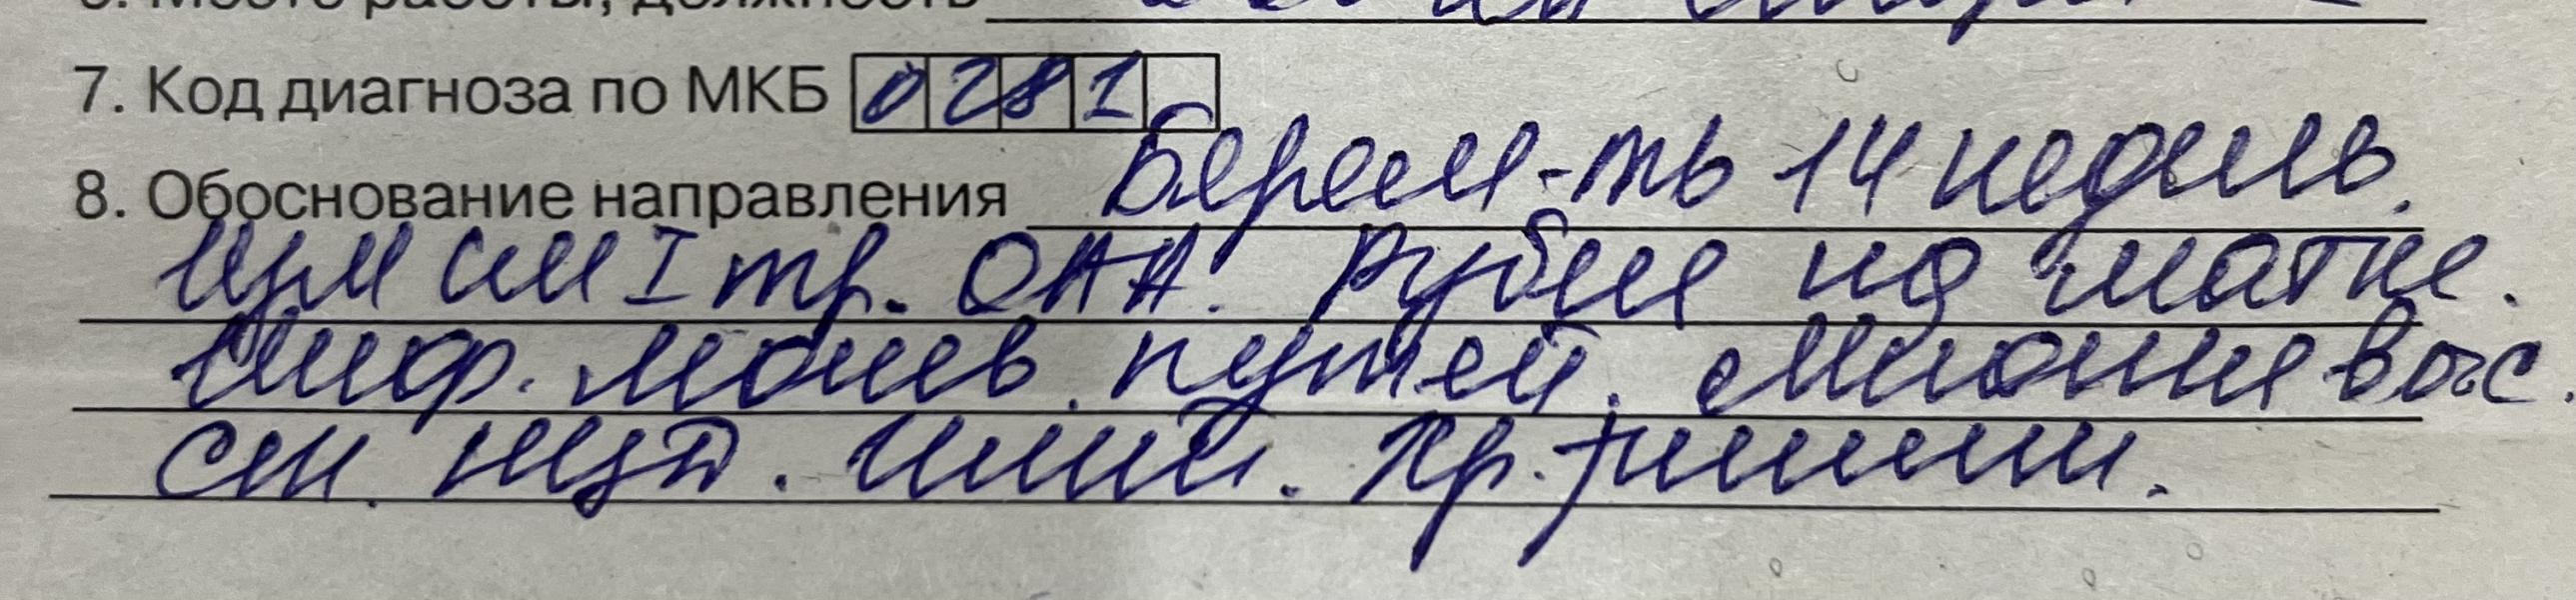 6. Место работы, должность
7. Код диагноза по МКБ 0281
8. Обоснование направления Берем-ть 14 недель.
Изм СМ I тр. ОАА. Рубец на матке.
Инф. мочев. путей. Миопия выс.
ст. Хр.